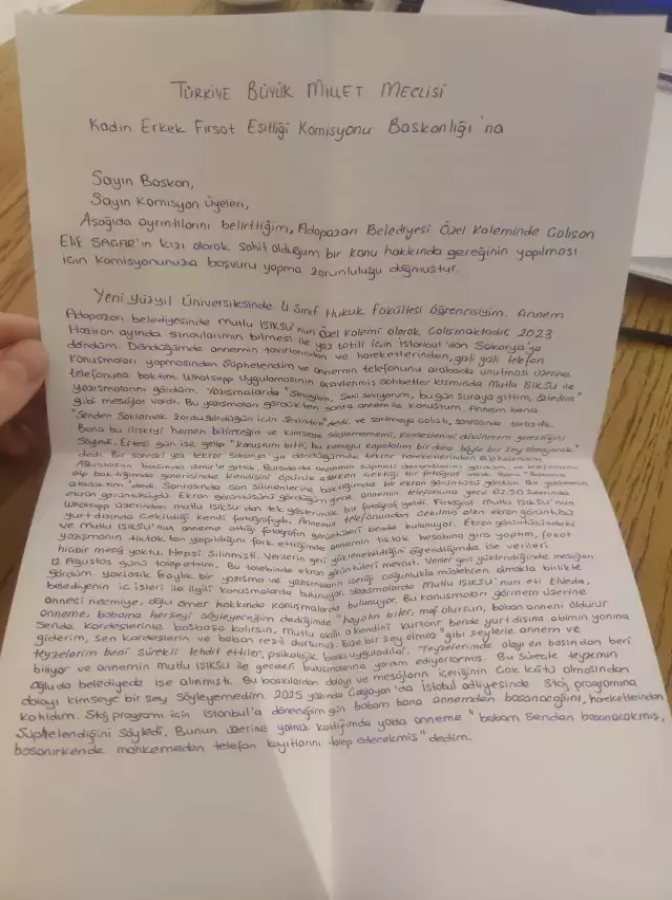 TÜRKİYE BÜYÜK MİLLET MECLİSİ
Kadın Erkek Fırsat Eşitliği Komisyonu Başkanlığı'na
Sayın Başkan,
Sayın Komisyon Üyeleri,
Aşağıda ayrıntılarını belirttiğim, Adapazarı Belediyesi Özel Kaleminde Çalışan
Elif SAĞAR'ın kızı olarak şahit olduğum bir konu hakkında gereğinin yapılması
için Komisyonunuza başvuru yapma zorunluluğu doğmuştur.
Yeni Yüzyıl Üniversitesinde 4. Sınıf Hukuk Fakültesi öğrencisiyim. Annem
Adapazarı belediyesinde Mutlu IŞIKSU'nun Özel Kalemi olarak Çalışmaktadır, 2023
Haziran ayında sınavlarımın bitmesi ile yaz tatili için İstanbul'dan Sakarya'ya
döndüm. Döndüğümde annemin tavırlarından ve hareketlerinden, gizli gizli telefon
konuşmaları yapmasından Şüphelendim ve annemin telefonunu arabada unutması üzerine
telefonuna baktım. Whatsapp Uygulamasının arşivlenmiş Sohbetler kısmında Mutlu IŞIKSU ile
yazışmalarını gördüm. Yazışmalarda "Sevgilim, Seni seviyorum, bugün şuraya gittim, özledim"
gibi mesajlar vardı. Bu yazışmaları gördükten sonra annem ile konuştum. Annem bana
"Senden Saklamak zordu gördüğün için Sevindim" dedi ve sarılmaya çalıştı, sonrasında tartıştık.
Bana bu ilişkiyi hemen bitireceğini ve kimseye söylemememi, kardeşlerimi düşünmem gerektiğini
Söyledi. Ertesi gün ise gelip "konuştum bitti, bu konuyu kapatalım bir daha böyle bir şey olmayacak"
dedi. Bir sonraki yaz tekrar Sakarya'ya döndüğümde tekrar hareketlerinden şüphelendim.
Ağustosun başında İzmir'e gittik. Burada da annemin şüpheli davranışlarını gördüm, ve telefonunu
alıp baktığımda galerisinde kendisini öpücük atarken çektiği bir fotoğraf vardı. Bana "babana
atacaktım" dedi. Sonrasında son silinenlerine baktığımda bir ekran görüntüsü gördüm. Bir yazışmanın
ekran görüntüsüydü. Ekran görüntüsünü gördüğüm gece annemin telefonuna gece 02.50 Suarında
Whatsapp üzerinden mutlu IŞIKSU'dan tek gösterimlik bir fotoğraf geldi. Fotoğraf Mutlu IŞIKSU'nun
yurtdışında Çekildiği kendi fotoğrafıydı. Annemin telefonundan Çekilmiş olan ekran görüntüsü
ve mutlu IŞIKSU'nun anneme attığı fotoğrafın görüntüleri bende bulunuyor. Ekran görüntüsündeki
yazışmanın tiktok'tan yapıldığını fark ettiğimde annemin tiktok hesabına giriş yaptım, fakat
hiçbir mesaj yoktu. Hepsi Silinmişti. Verilerin geri yüklenebildiğini öğrendiğimde ise verileri
12 Ağustos günü talep ettim. Bu talebinde ekran görüntüleri mevcut. Veriler geri yüklendiğinde mesajları
gördüm yaklaşık 8 aylık bir yazışma ve yazışmaların içeriği Çoğunlukla müstehcen olmakla birlikte
belediyenin iç işleri ile ilgili konuşmalarda bulunuyor. Yazışmalarda Mutlu IŞIKSU'nun eşi Elveda,
annesi necmiye, oğlu ömer hakkında konuşmalarda bulunuyor. Bu konuşmaları görmem üzerine
anneme, babama herşeyi söyleyeceğim dediğimde "hayatın biter, maf olursun, baban anneni öldürür
Sende kardeşlerinle başbaşa kalırsın, Mutlu akıllı o kendini kurtarır bende yurtdışına abimin yanına
giderim, Sen kardeşlerin ve baban rezil olursunuz. Bize bir şey olmaz" gibi şeylerle annem ve
teyzelerim beni Sürekli tehdit ettiler, psikolojik baskı uyguladılar. Teyzelerimde olayı en başından beri
biliyor ve annemin mutlu IŞIKSU ile geceleri buluşmalarına yardım ediyorlarmış. Bu Süreçte teyzemin
oğlu da belediyede işe alınmıştı. Bu baskılardan dolayı ve mesajların içeriğinin Çok kötü olmasından
dolayı kimseye bir şey Söyleyemedim. 2025 yazında Çağlayan'da İstabul adliyesinde Staj programına
katıldım. Staj programı için İstanbul'a döneceğim gün babam bana annemden boşanacağını, hareketlerinden
Şüphelendiğini söyledi. Bunun üzerine yalnız kaldığımda yolda anneme "babam Senden boşanacakmış,
boşanırkende mahkemeden telefon kayıtlarını talep edecekmiş" dedim.